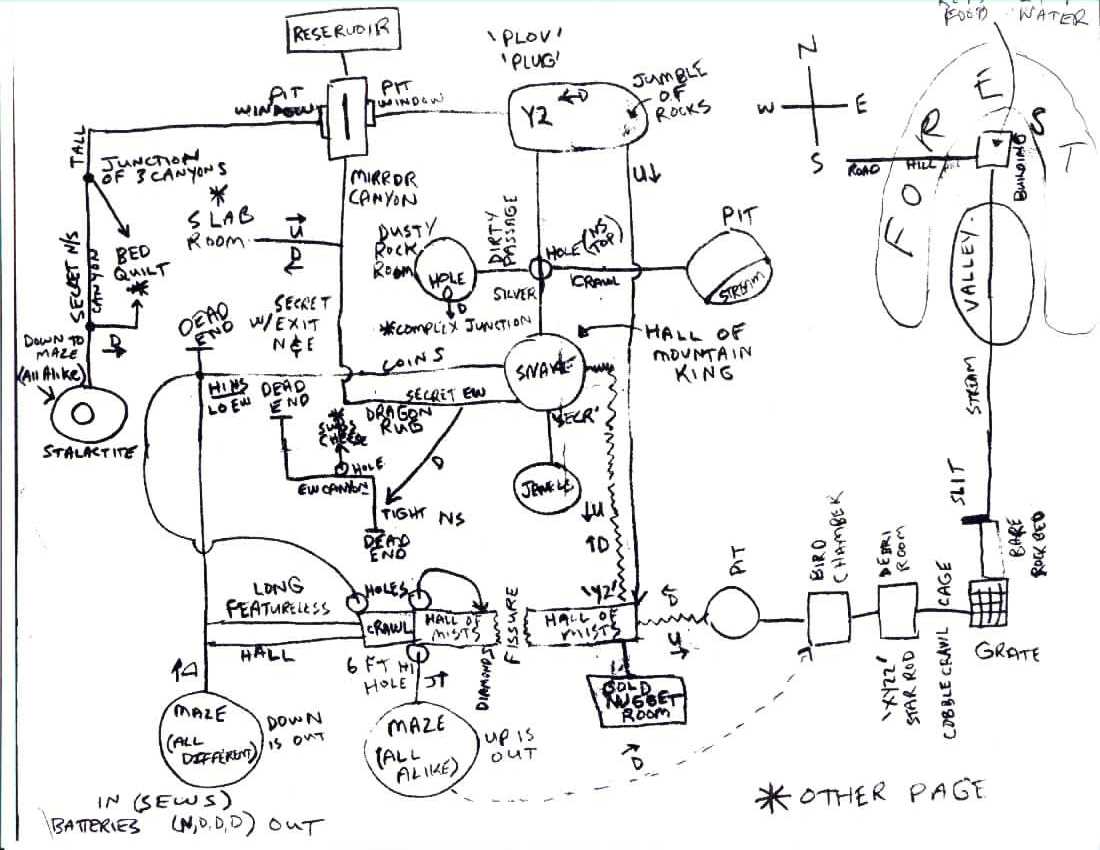 FOOD WATER
RESERVOIR
'PLOV'
'PLUG'
JUMBLE
OF
ROCKS
PIT
WINDOW
PIT
WINDOW
Y2
D
N
W E
S
FOREST
ROAD
HILL
BUILDING
TALL
JUNCTION
OF 3 CANYONS
MIRROR
CANYON
U
SLAB
ROOM
U
D
DUSTY
ROCK
ROOM
HOLE
D
DIRTY
PASSAGE
HOLE (NS TOP)
CRAWL
PIT
STREAM
VALLEY
BED
QUILT
*
SECRET N/S
CANYON
D
SILVER
*COMPLEX JUNCTION
HALL OF
MOUNTAIN
KING
DEAD
END
SECRET
W/EXIT
N&E
DOWN TO
MAZE
(All Alike)
STALACTITE
COINS
SNAKE
SECRET EW
DRAGON
RUG
HI NS
LO EW
DEAD
END
*
SWISS
CHEESE
HOLE
EW CANYON
D
TIGHT NS
DEAD
END
JEWELS
U
D
STREAM
SLIT
BARE
ROCK BED
GRATE
BIRD
CHAMBER
DEBRI
ROOM
CAGE
COBBLE CRAWL
STAR ROD
PIT
'Y2'
D
U
LONG
FEATURELESS
HOLES
CRAWL
HALL OF
MISTS
FISSURE
HALL OF
MISTS
DIAMONDS
HALL
6 FT HI
HOLE
U
GOLD
NUGGET
ROOM
D
D
MAZE
(ALL
DIFFERENT)
DOWN
IS OUT
MAZE
(ALL
ALIKE)
UP IS
OUT
IN (SEWS)
BATTERIES (N,D,D,D) OUT
* OTHER PAGE